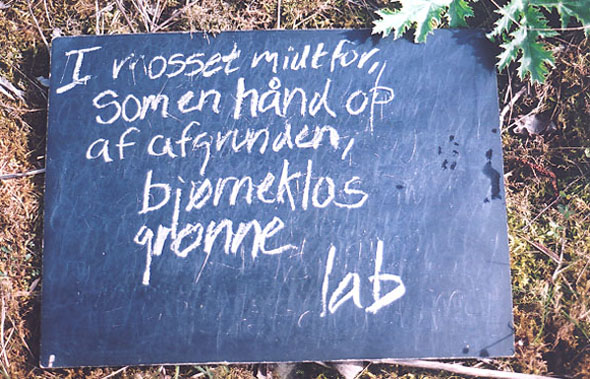 I mosset midt for,
som en hånd op
af afgrunden,
bjørneklos
grønne
lab